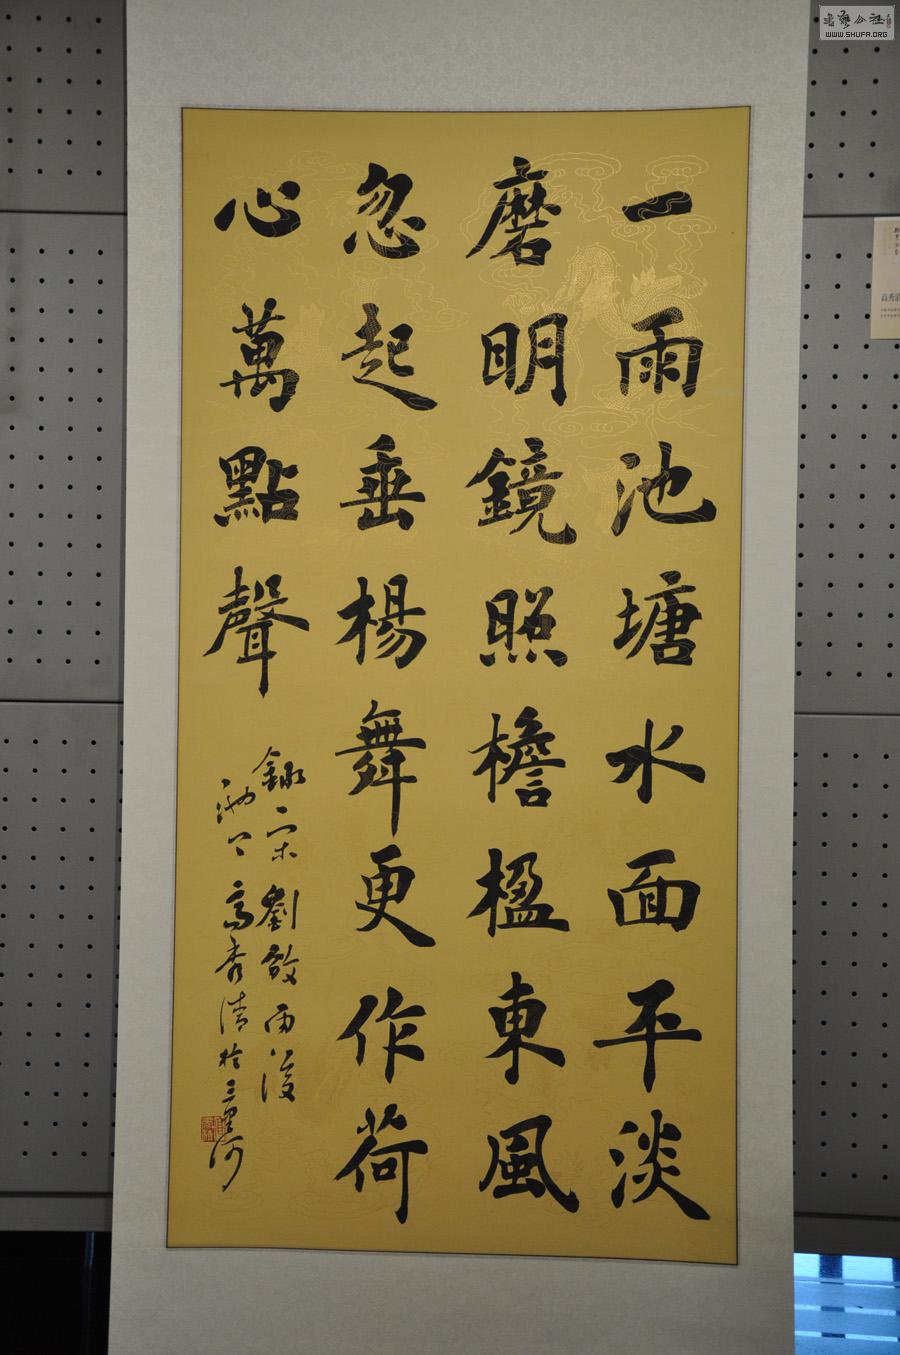 一雨池塘水面平淡
磨明鏡照檐楹東風
忽起垂楊舞更作荷
心萬點聲
錄宋劉攽雨後
池上高秀清於三里河
WWW.SHUFA.ORG
高秀清